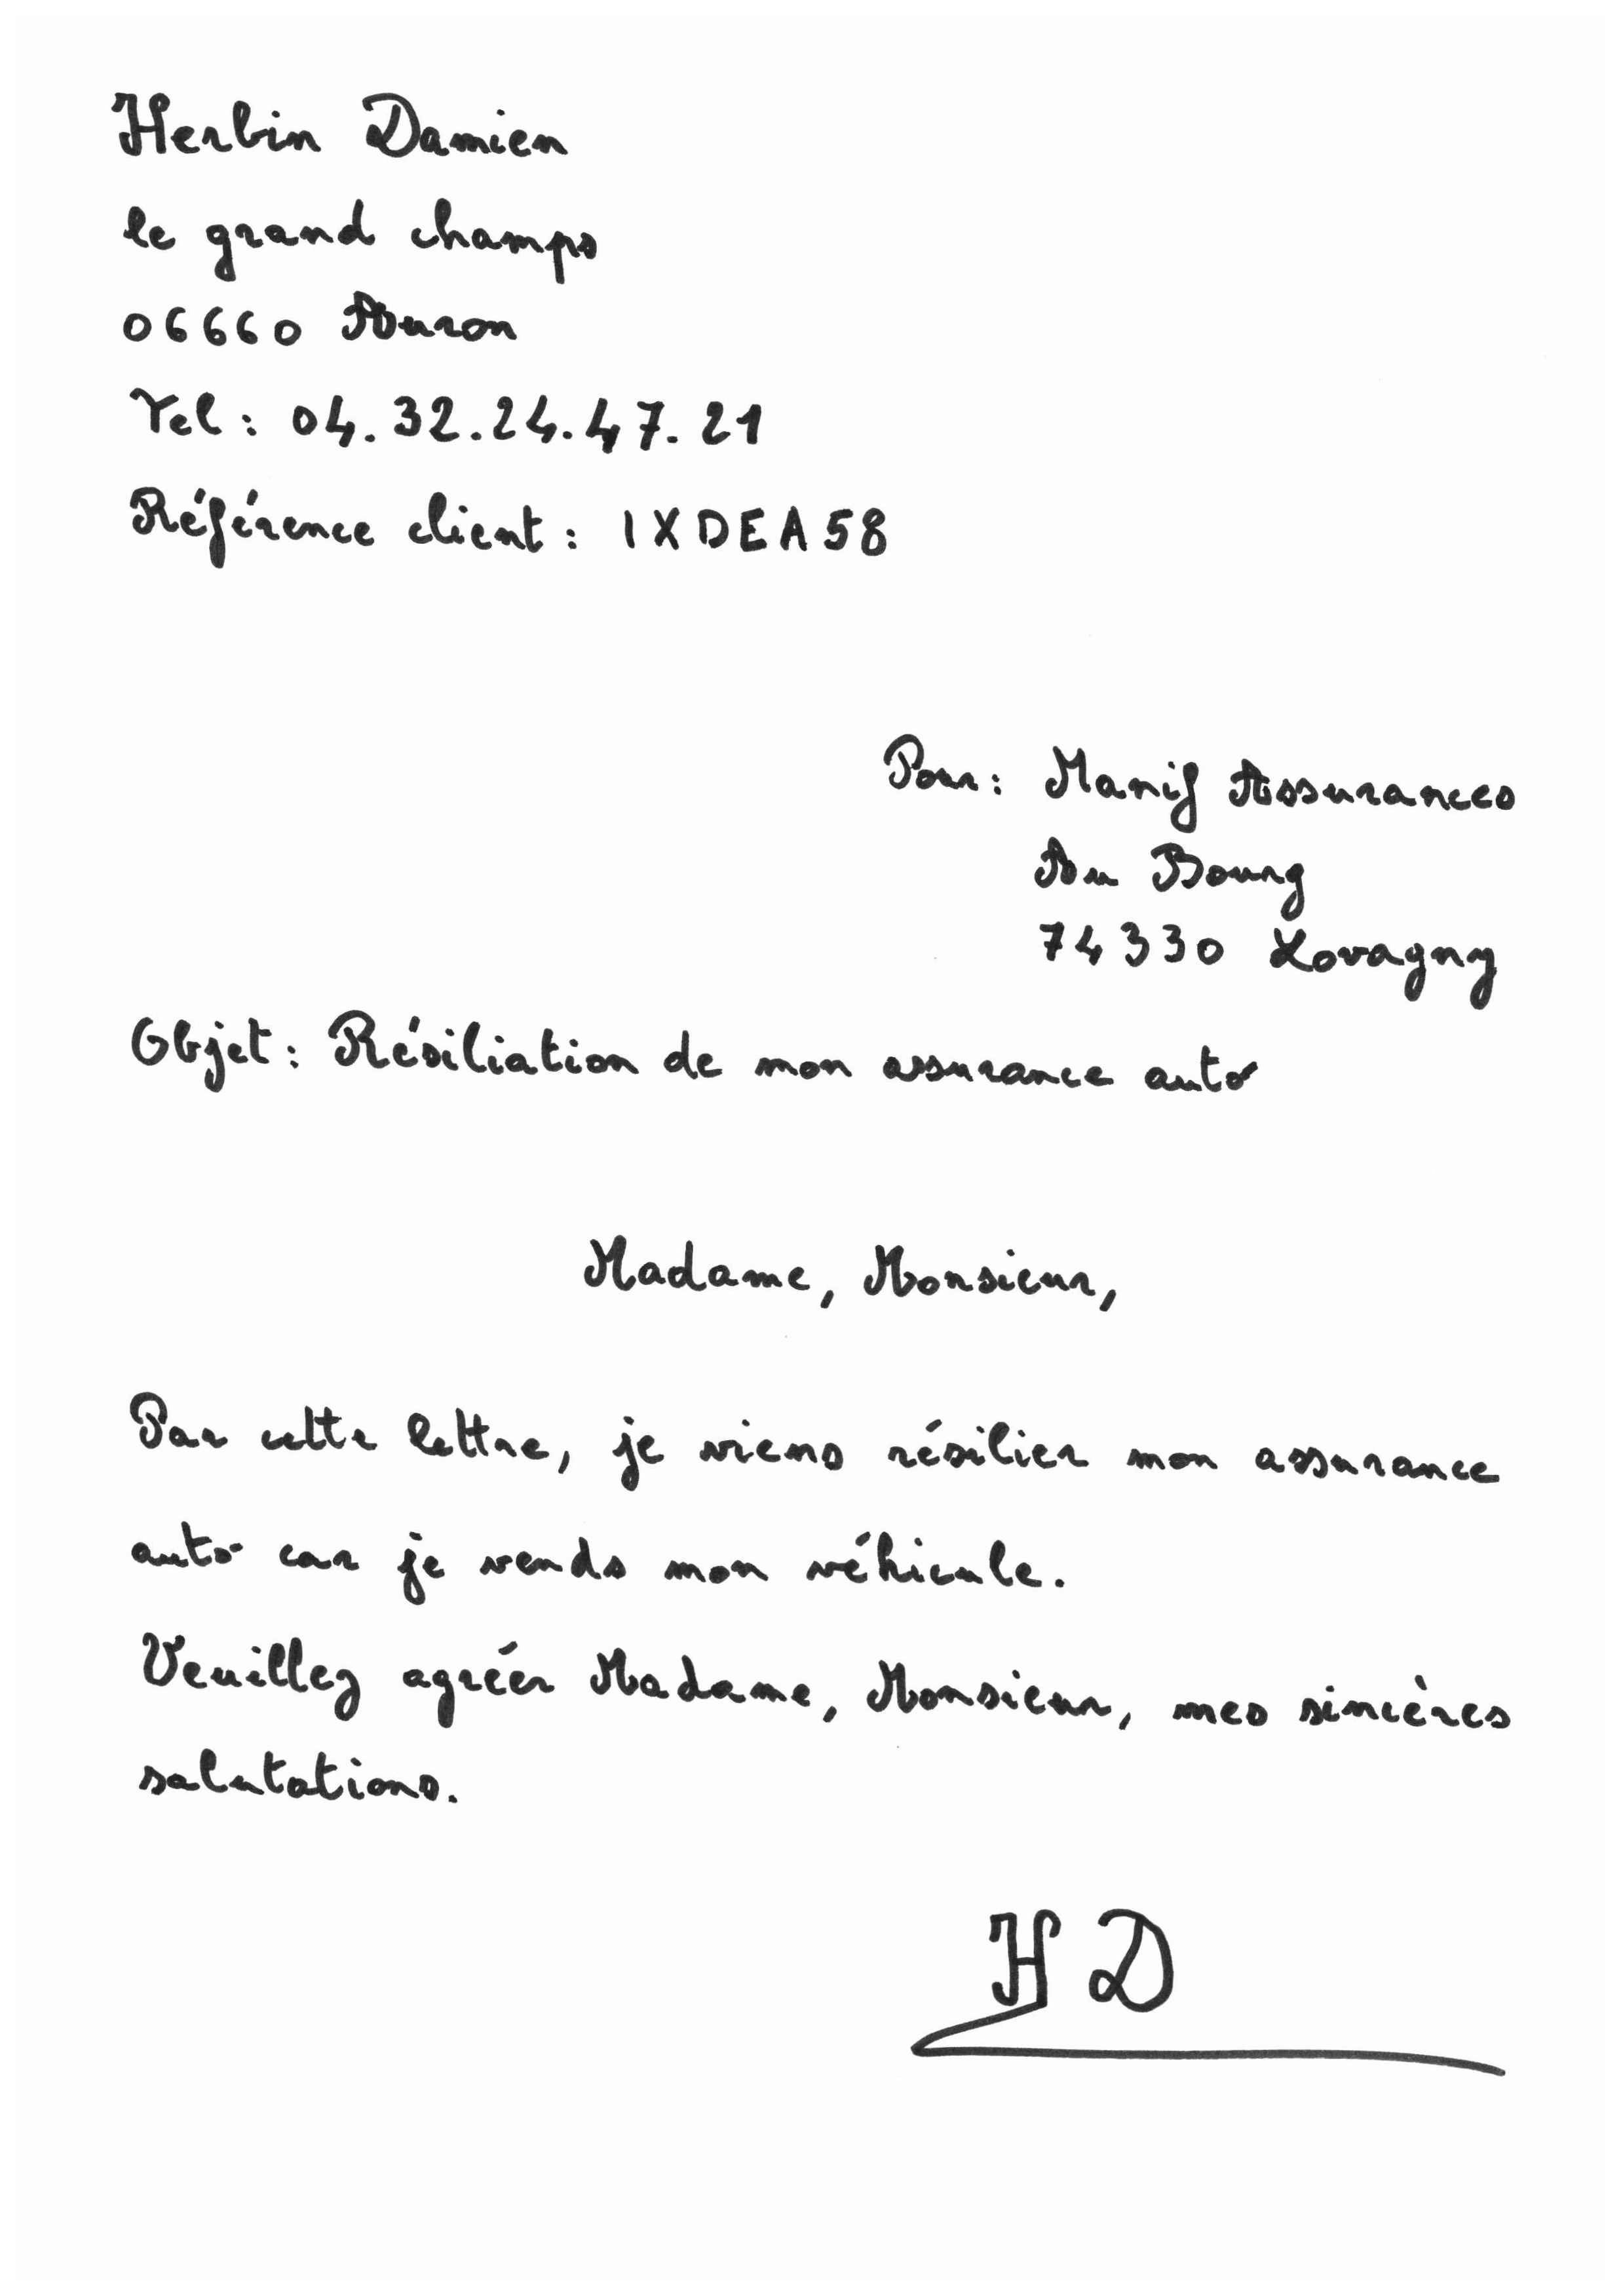 Herbin Damien
le grand champs
06660 Auron
Tel : 04.32.24.47.21
Référence client : IXDEA58
Pour : Manif Assurances
Au Bourg
74330 Lovagny
Objet : Résiliation de mon assurance auto
Madame, Monsieur,
Par cette lettre, je viens résilier mon assurance
auto car je vends mon véhicule.
Veuillez agréer Madame, Monsieur, mes sincères
salutations.
HD